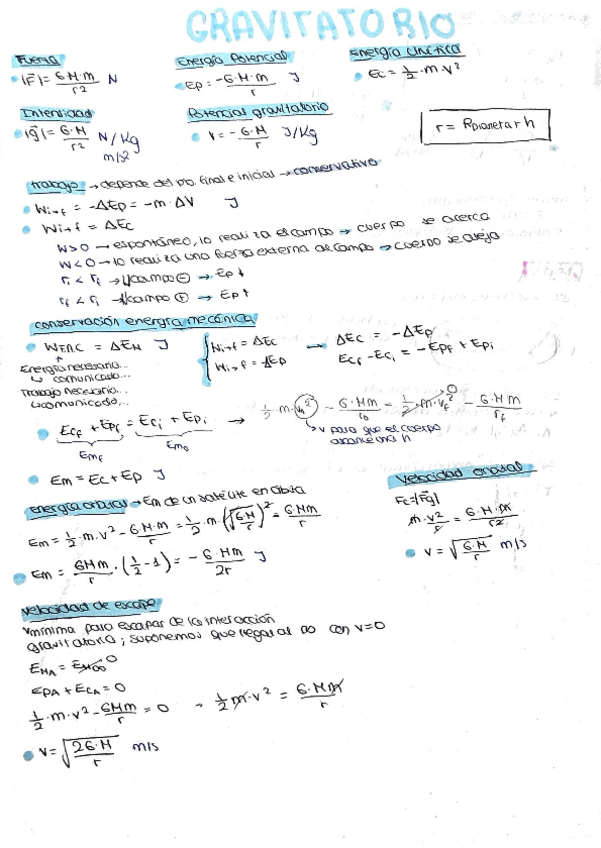 GRAVITATORIO
Fuerza
|F⃗| = G·M·m / r² N
Energía Potencial
Ep = -G·M·m / r J
Energía Cinética
Ec = ½·m·v²
Intensidad
|g⃗| = G·M / r² N/Kg
m/s²
Potencial gravitatorio
V = -G·M / r J/Kg
r = Rplaneta + h
trabajo → depende del pto. final e inicial → conservativo
Wi→f = -ΔEp = -m·ΔV J
Wi→f = ΔEc
W>0 → espontáneo, lo realiza el campo → cuerpo se acerca
W<0 → lo realiza una fuerza externa al campo → cuerpo se aleja
→ Wcampo ⊖ → Ep↑
→ Wcampo ⊕ → Ep
conservación energía mecánica
WFNC = ΔEM J
Energía necesaria...
↳ comunicada...
Trabajo necesario...
↳ comunicado...
Wi→f = ΔEc
Wi→f = -ΔEp
→ ΔEc = -ΔEp
Ecf - Eci = -Epf + Epi
Ecf + Epf = Eci + Epi
Emf Em0
→ ½·m·v0² - G·M·m / r0 = ½·m·vf² - G·M·m / rf
0
↳ v para que el cuerpo
alcance una h
Em = Ec + Ep J
energía orbital → Em de un satélite en órbita
Em = ½·m·v² - G·M·m / r = ½·m·(√(G·M / r))² - GMm / r
Em = GMm / r · (½ - 1) = - G·Mm / 2r J
velocidad orbital
Fc = |F⃗g|
m·v² / r = G·M·m / r²
v = √(G·M / r) m/s
velocidad de escape
vmínima para escapar de la interacción
gravitatoria; suponemos que llega al ∞ con v=0
EMA = EM∞ 0
EpA + EcA = 0
½·m·v² - GMm / r = 0 → ½·m·v² = G·M·m / r
v = √(2G·M / r) m/s